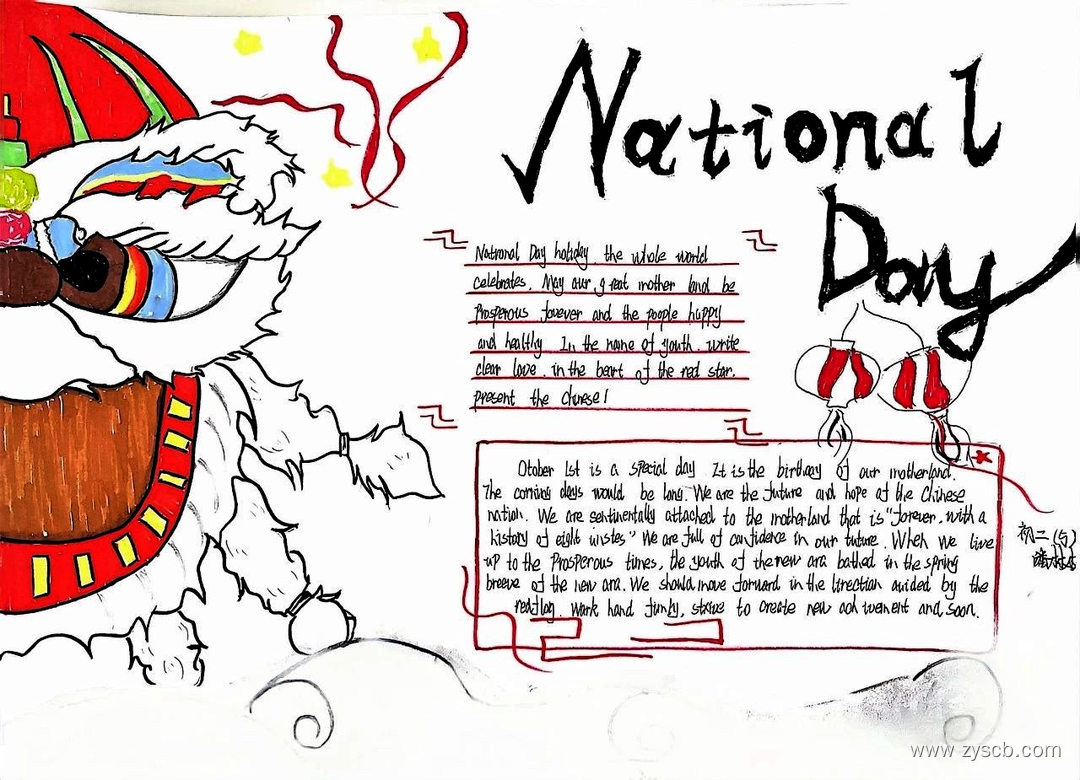 National
Day
National Day holiday the whole world
celebrates. May our great mother land be
Prosperous fovever and the poople happy
and healthy In the name of youth. write
clear love. in the beart of the red star.
present the Chinese!
Otober 1st is a special day It is the birthday of our motherland.
The coming days would be long. We are the future and hope of the Chinese
nation. We are sentinentally attached to the motherland that is "forever, with a
history of eight winstes." We are full of confidence in our future. When we live
up to the Prosperous times, the youth of the new ara bathed in the spring
breeve of the new ara. We should move forward in the lirection guided by the
red flag. Work hand, strive to create new and soon.
初二(5)
www.zyscb.com